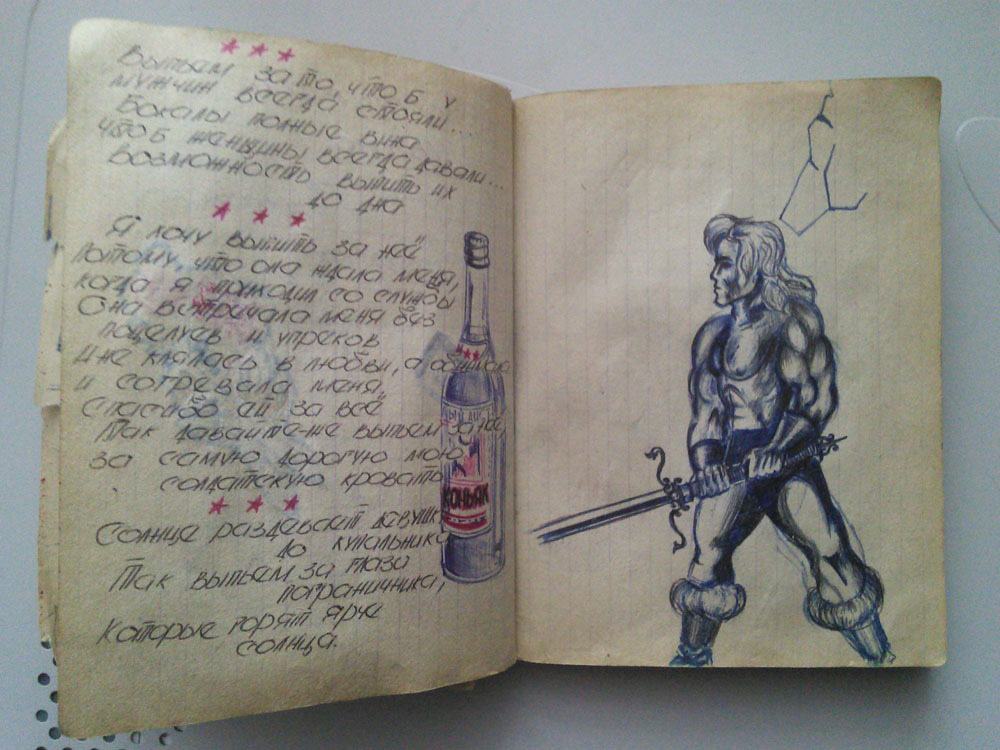 * * *
Выпьем за то, что б у
мужчин всегда стояли...
Бокалы полные вина,
что б женщины всегда давали...
Возможность выпить их
до дна
* * *
Я хочу выпить за неё
Потому, что она ждала меня,
когда я приходил со службы
Она встречала меня без
поцелуев и упреков
И не клялась в любви, а обнимала
и согревала меня,
Спасибо ей за всё
Так давайте-же выпьем за неё
за самую дорогую мою
солдатскую кровать
* * *
Солнце раздевает девушку
до купальника
Так выпьем за глаза
пограничника,
Которые горят ярче
солнца.
***
КОНЬЯК